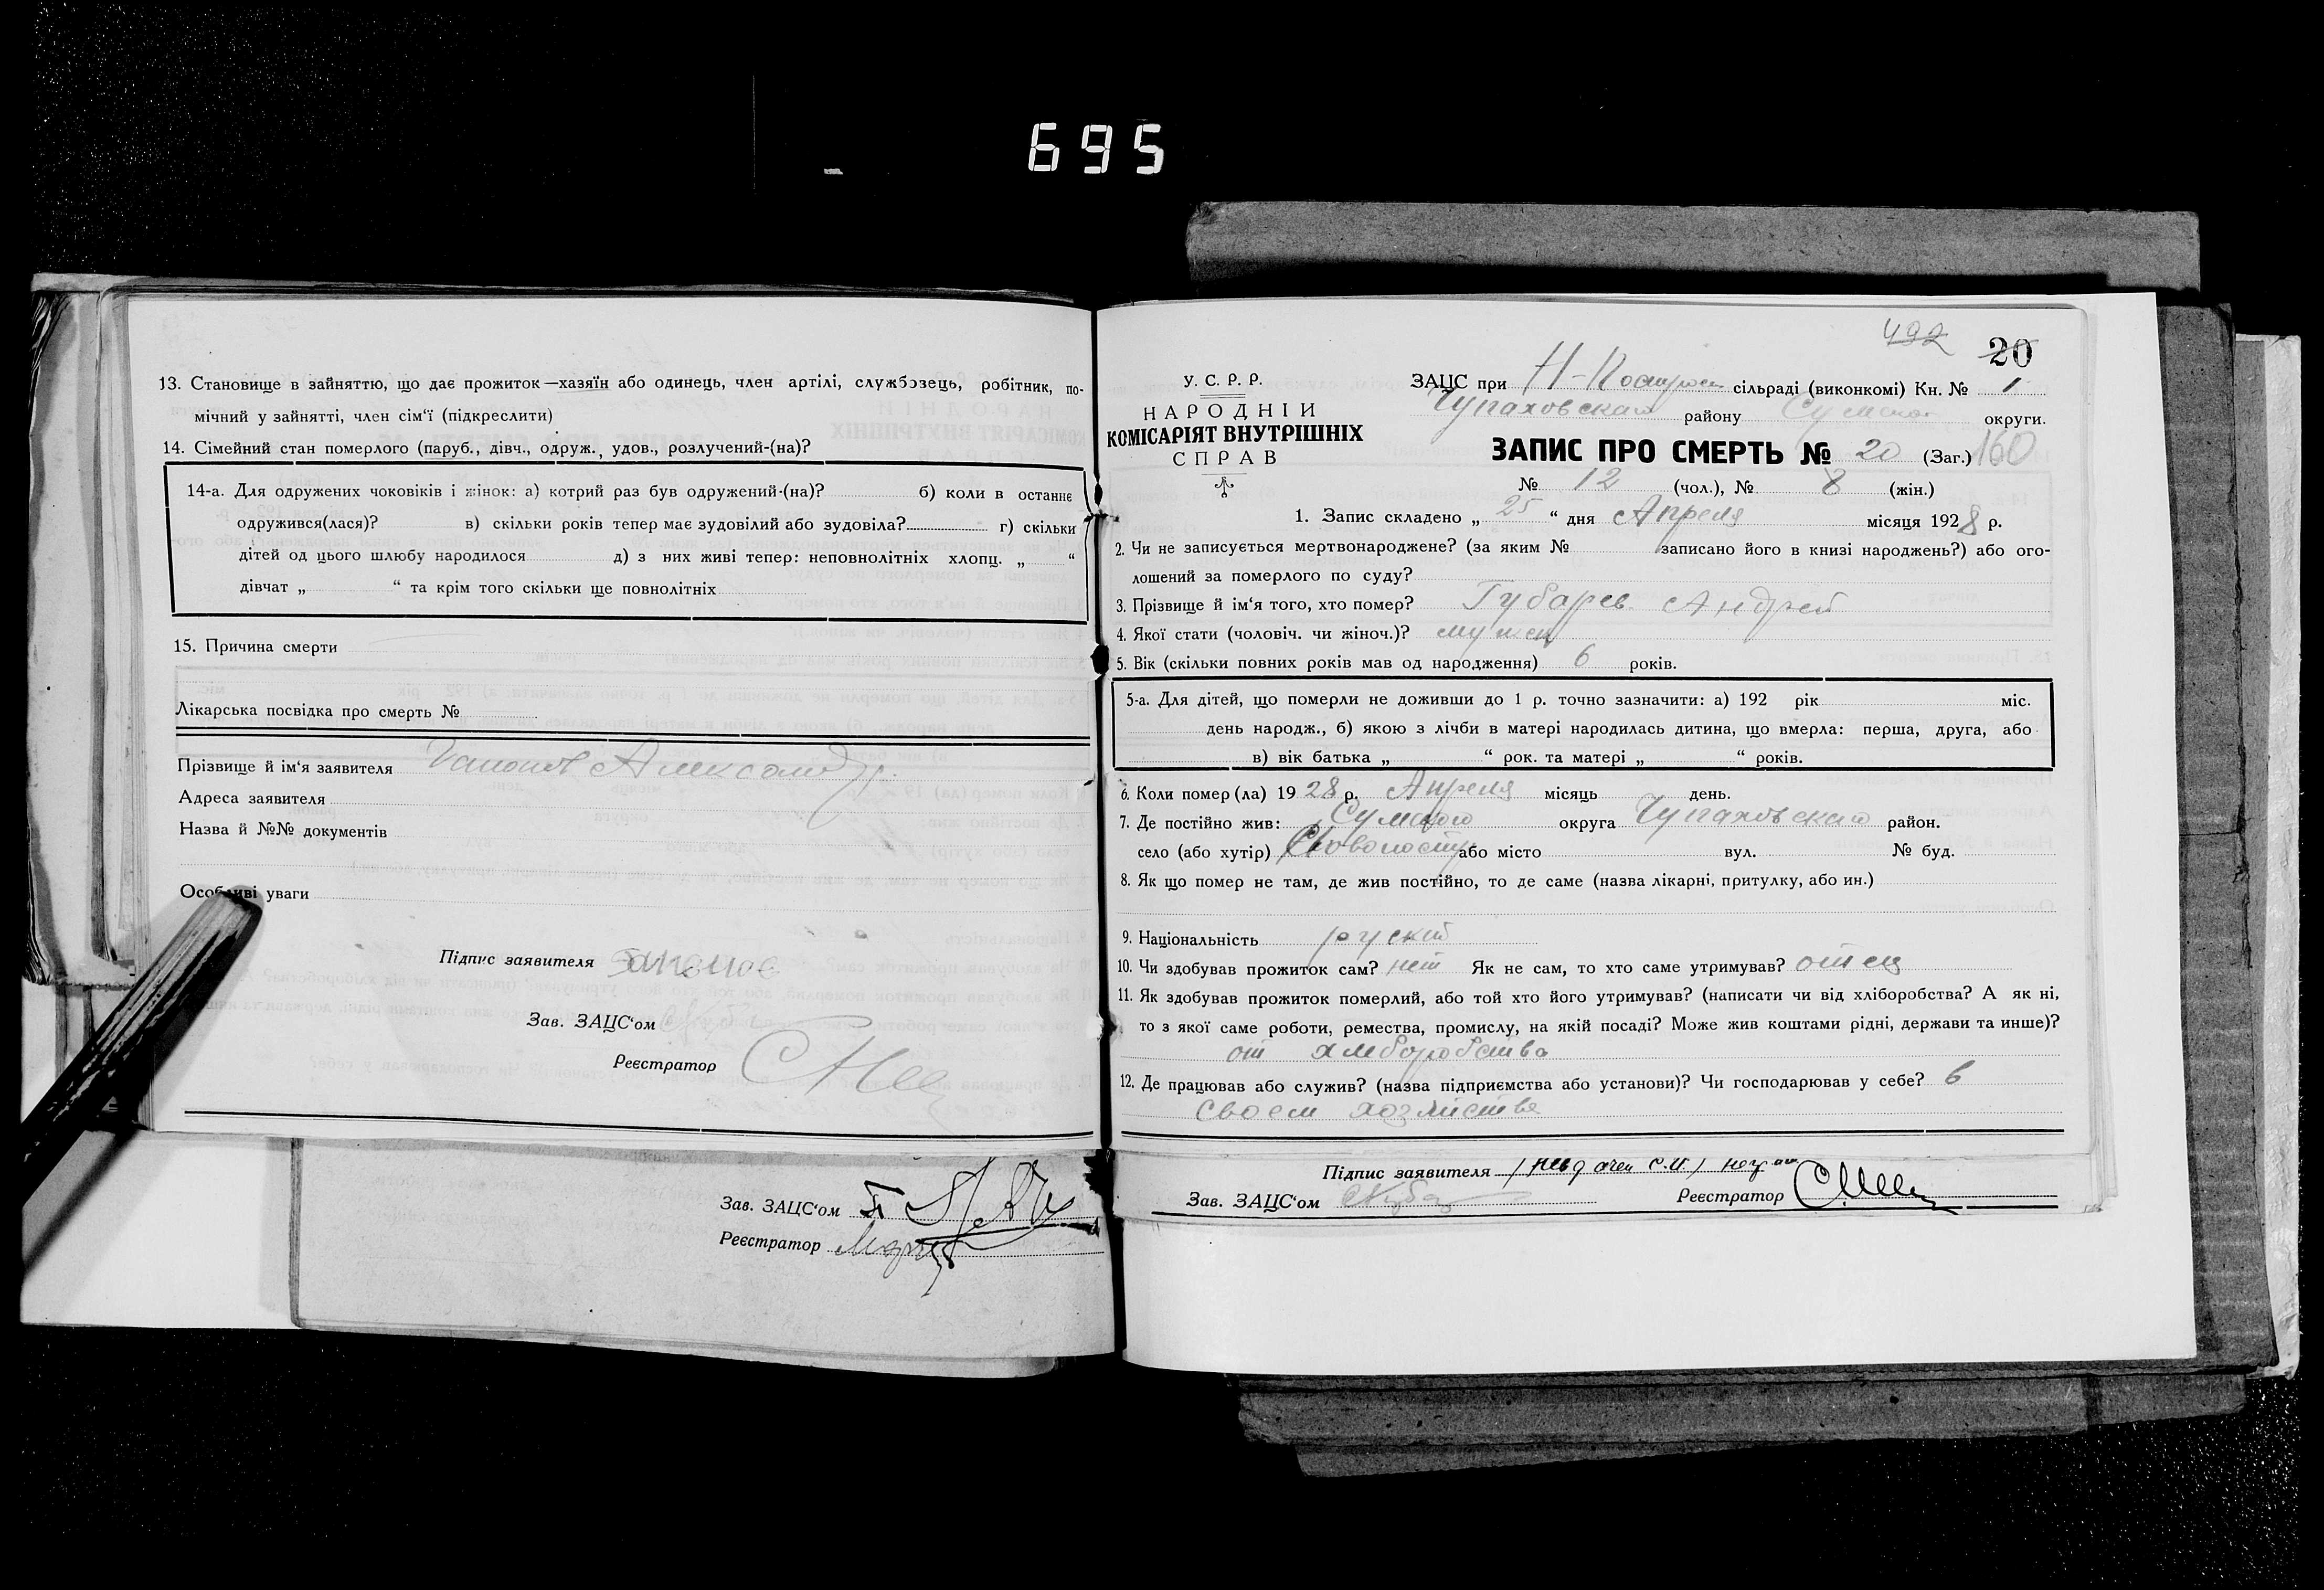 695
13. Становище в зайняттю, що дає прожиток—хазяїн або одинець, член артілі, службовець, робітник, по-
мічний у зайнятті, член сім'ї (підкреслити)
14. Сімейний стан померлого (паруб., дівч., одруж., удов., розлучений-(на)?
14-а. Для одружених чоковіків і жінок: а) котрий раз був одружений-(на)? б) коли в останнє
одружився(лася)? в) скільки років тепер має зудовілий або зудовіла? г) скільки
дітей од цього шлюбу народилося д) з них живі тепер: неповнолітніх хлопц. „ “
дівчат „ “ та крім того скільки ще повнолітніх
15. Причина смерти
Лікарська посвідка про смерть №
Прізвище й ім'я заявителя Гапонов Александр
Адреса заявителя
Назва й №№ документів
Особливі уваги
Підпис заявителя Гапонов
Зав. ЗАЦС'ом
Реєстратор
Зав. ЗАЦС'ом
Реєстратор
492
20
У. С. Р. Р.
НАРОДНІЙ
КОМІСАРІЯТ ВНУТРІШНІХ
СПРАВ
ЗАЦС при сільраді (виконкомі) Кн. № 1
Чупаховская району округи.
ЗАПИС ПРО СМЕРТЬ № 20 (Заг.) 160
№ 12 (чол.), № 8 (жін.)
1. Запис складено „ 25 “ дня Апреля місяця 1928 р.
2. Чи не записується мертвонароджене? (за яким № записано його в книзі народжень?) або ого-
лошений за померлого по суду?
3. Прізвище й ім'я того, хто помер? Губарев Андрей
4. Якої стати (чоловіч. чи жіноч.)? мужск
5. Вік (скільки повних років мав од народження) 6 років.
5-а. Для дітей, що померли не доживши до 1 р. точно зазначити: а) 192 рік міс.
день народж., б) якою з лічби в матері народилась дитина, що вмерла: перша, друга, або
в) вік батька „ “ рок. та матері „ “ років.
6. Коли помер (ла) 19 28 р. Апреля місяць день.
7. Де постійно жив: Сумского округа Чупаховская район.
село (або хутір) або місто вул. № буд.
8. Як що помер не там, де жив постійно, то де саме (назва лікарні, притулку, або ин.)
9. Національність руский
10. Чи здобував прожиток сам? нет Як не сам, то хто саме утримував? отец
11. Як здобував прожиток померлий, або той хто його утримував? (написати чи від хліборобства? А як ні,
то з якої саме роботи, ремества, промислу, на якій посаді? Може жив коштами рідні, держави та инше)?
от хлеборобства
12. Де працював або служив? (назва підприємства або установи)? Чи господарював у себе? в
своем хозяйстве
Підпис заявителя
Зав. ЗАЦС'ом Реєстратор